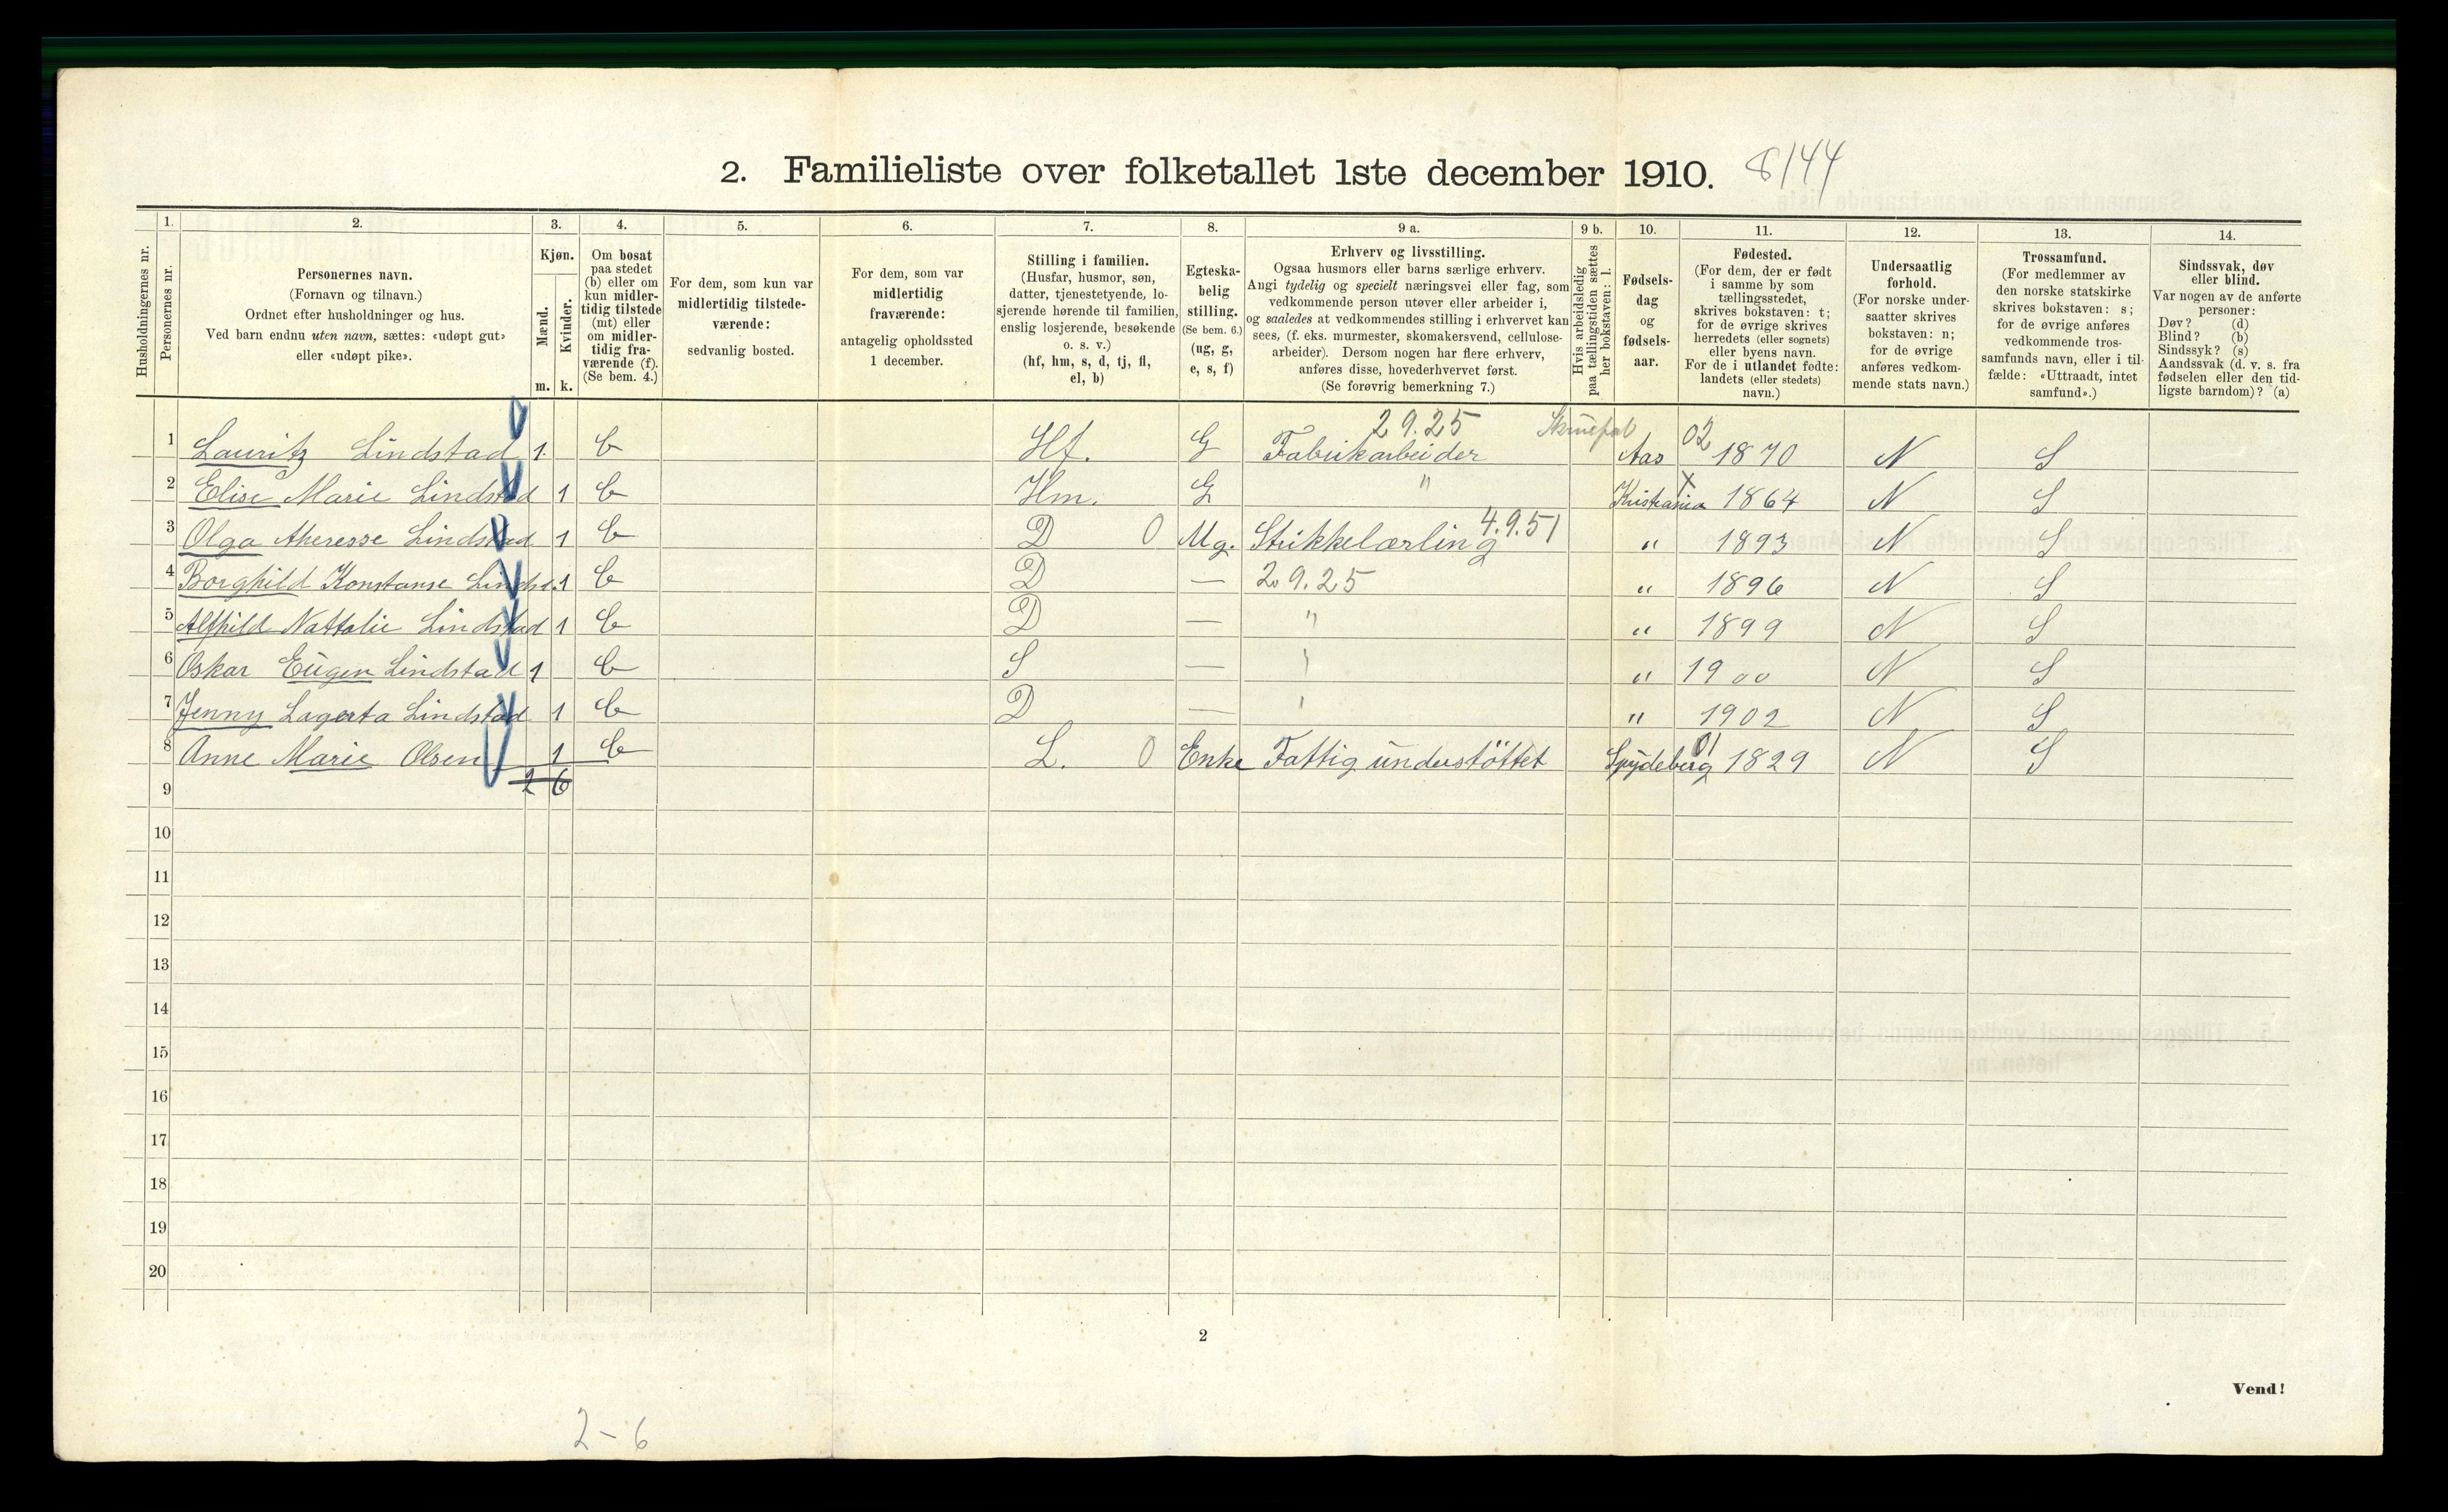 2. Familieliste over folketallet 1ste december 1910. 8144
Husholdningernes nr.
1. Personernes nr.
2. Personernes navn.
(Fornavn og tilnavn.)
Ordnet efter husholdninger og hus.
Ved barn endnu uten navn, sættes: «udøpt gut»
eller «udøpt pike».
3. Kjøn.
Mænd. m.
Kvinder. k.
4. Om bosat
paa stedet
(b) eller om
kun midler-
tidig tilstede
(mt) eller
om midler-
tidig fra-
værende (f).
(Se bem. 4.)
5. For dem, som kun var
midlertidig tilstede-
værende:
sedvanlig bosted.
6. For dem, som var
midlertidig
fraværende:
antagelig opholdssted
1 december.
7. Stilling i familien.
(Husfar, husmor, søn,
datter, tjenestetyende, lo-
sjerende hørende til familien,
enslig losjerende, besøkende
o. s. v.)
(hf, hm, s, d, tj, fl,
el, b)
8. Egteska-
belig
stilling.
(Se bem. 6.)
(ug, g,
e, s, f)
9 a. Erhverv og livsstilling.
Ogsaa husmors eller barns særlige erhverv.
Angi tydelig og specielt næringsvei eller fag, som
vedkommende person utøver eller arbeider i,
og saaledes at vedkommendes stilling i erhvervet kan
sees, (f. eks. murmester, skomakersvend, cellulose-
arbeider). Dersom nogen har flere erhverv,
anføres disse, hovederhvervet først.
(Se forøvrig bemerkning 7.)
9 b. Hvis arbeidsledig
paa tællingstiden sættes
her bokstaven: l.
10. Fødsels-
dag
og
fødsels-
aar.
11. Fødested.
(For dem, der er født
i samme by som
tællingsstedet,
skrives bokstaven: t;
for de øvrige skrives
herredets (eller sognets)
eller byens navn.
For de i utlandet fødte:
landets (eller stedets)
navn.)
12. Undersaatlig
forhold.
(For norske under-
saatter skrives
bokstaven: n;
for de øvrige
anføres vedkom-
mende stats navn.)
13. Trossamfund.
(For medlemmer av
den norske statskirke
skrives bokstaven: s;
for de øvrige anføres
vedkommende tros-
samfunds navn, eller i til-
fælde: «Uttraadt, intet
samfund».)
14. Sindssvak, døv
eller blind.
Var nogen av de anførte
personer:
Døv? (d)
Blind? (b)
Sindssyk? (s)
Aandssvak (d. v. s. fra
fødselen eller den tid-
ligste barndom)? (a)
29.25 02
1 Lauritz Lindstad 1 b Hf. G Fabrikarbeider Aas 1870 N S
2 Elise Marie Lindstad 1 b Hm. G " Kristiania X 1864 N S
3 Olga Theresse Lindstad 1 b D 0 Ug. Strikkelærling 4.9.51 " 1893 N S
4 Borghild Konstanse Lindst. 1 b D — 29.25 " 1896 N S
5 Alfhild Nattalie Lindstad 1 b D — " " 1899 N S
6 Oskar Eugen Lindstad 1 b S — " " 1900 N S
7 Jenny Lagerta Lindstad 1 b D — " " 1902 N S
8 Anne Marie Olsen 1 b L. 0 Enke Fattig understöttet Spydeberg 01 1829 N S
2 6
9
10
11
12
13
14
15
16
17
18
19
20
2
Vend!
2-6